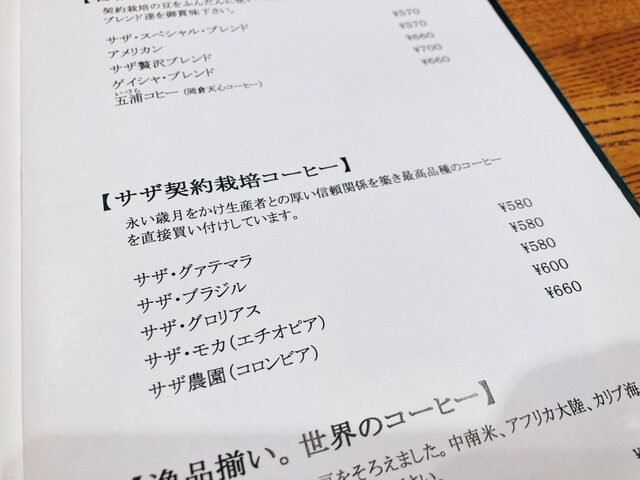 契約栽培の豆をふんだんに使い
ブレンド達を御賞味下さい。
サザ・スペシャル・ブレンド ¥570
アメリカン ¥570
サザ贅沢ブレンド ¥660
ゲイシャ・ブレンド ¥700
いづら
五浦コヒー(岡倉天心コーヒー) ¥660
【サザ契約栽培コーヒー】
永い歳月をかけ生産者との厚い信頼関係を築き最高品種のコーヒー
を直接買い付けしています。
サザ・グァテマラ ¥580
サザ・ブラジル ¥580
サザ・グロリアス ¥580
サザ・モカ(エチオピア) ¥600
サザ農園(コロンビア) ¥660
【逸品揃い。世界のコーヒー】
豆をそろえました。中南米、アフリカ大陸、カリブ海、